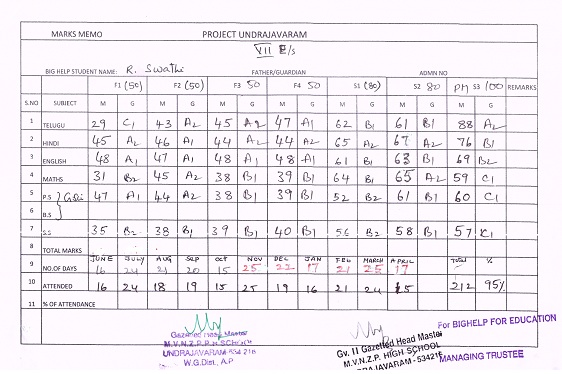 MARKS MEMO PROJECT UNDRAJAVARAM
VII E/s
BIG HELP STUDENT NAME: R. Swathi FATHER/GUARDIAN ADMN NO
F1 (50) F2 (50) F3 50 F4 50 S1 (80) S2 80 PM S3 /100 REMARKS
S.NO SUBJECT M G M G M G M G M G M G M G
1 TELUGU 29 C1 43 A2 45 A2 47 A1 62 B1 61 B1 88 A2
2 HINDI 45 A2 46 A1 44 A2 44 A2 65 A2 67 A2 76 B1
3 ENGLISH 48 A1 47 A1 48 A1 48 A1 61 B1 63 B1 69 B2
4 MATHS 31 B2 45 A2 38 B1 39 B1 64 B1 65 A2 59 C1
5 P.S 47 A1 44 A2 38 B1 39 B1 52 B2 61 B1 60 C1
6 B.S
7 S.S 35 B2 38 B1 39 B1 40 B1 56 B2 58 B1 57 C1
8 TOTAL MARKS
JUNE JULY AUG SEP OCT NOV DEC JAN FEB MARCH APRIL TOTAL %
9 NO.OF DAYS 16 24 21 20 15 25 22 17 21 25 17
10 ATTENDED 16 24 18 19 15 25 19 16 21 24 15 212 95%
11 % OF ATTENDANCE
Gazetted Head Master
M.V.N.Z.P.P. H. School
UNDRAJAVARAM-534 216
W.G.Dist., A.P
Gv. II Gazetted Head Master
M.V.N.Z.P. HIGH SCHOOL
UNDRAJAVARAM - 534216
For BIGHELP FOR EDUCATION
MANAGING TRUSTEE